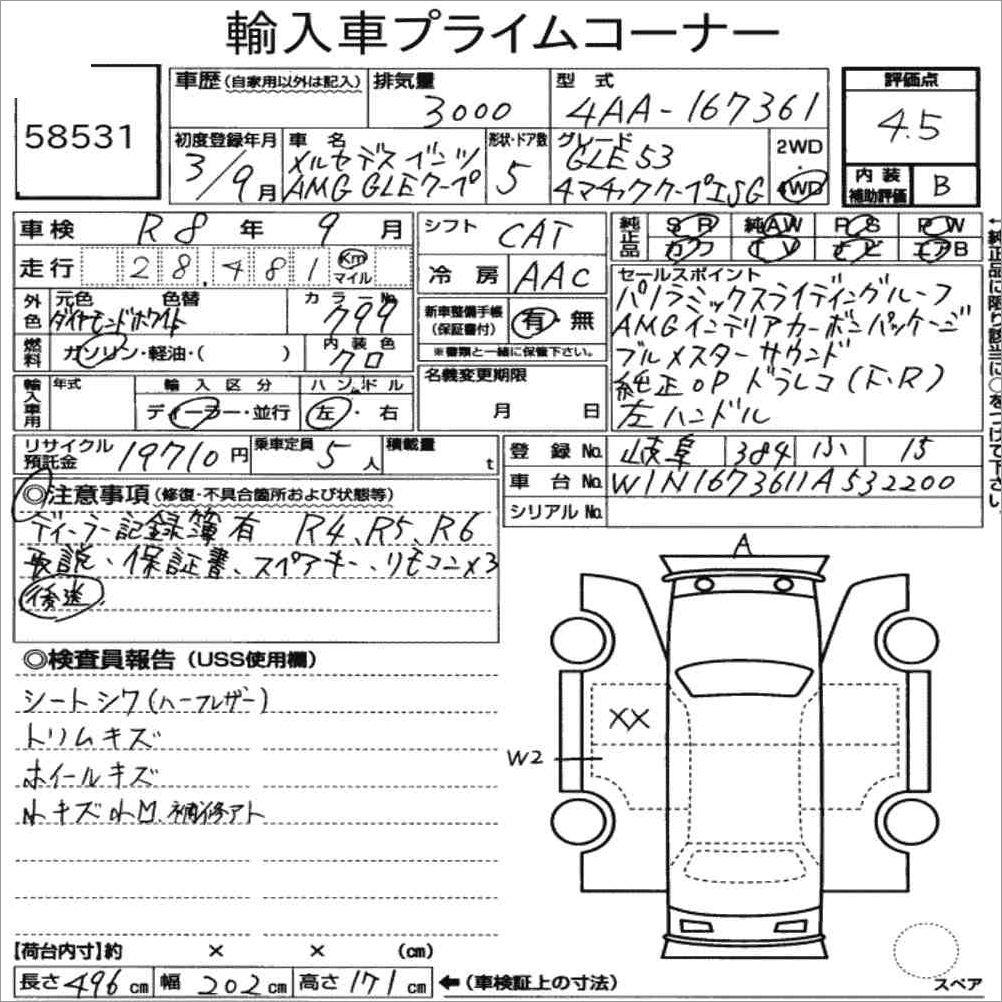 輸入車プライムコーナー
58531
車歴(自家用以外は記入)
排気量
3000
型式
4AA-167361
評価点
4.5
初度登録年月
3/9月
車名
メルセデスベンツ
AMG GLEクーペ
形状・ドア数
5
グレード
GLE53
4マチッククーペISG
2WD
4WD
内装
補助評価
B
車検 R8年 9月
シフト CAT
純正品
SR 純AW PS PW
カワ TV ナビ エアB
走行 28,481 Km
マイル
冷房 AAC
セールスポイント
パノラミックスライディングルーフ
AMGインテリアカーボンパッケージ
ブルメスターサウンド
純正OPドラレコ(F.R)
左ハンドル
外色
元色 色替
ダイヤモンドホワイト
カラーNo.
799
新車整備手帳
(保証書付)
有・無
※書類と一緒に保管下さい。
燃料
ガソリン・軽油・( )
内装色
クロ
名義変更期限
月 日
輸入車用
年式
輸入区分
ディーラー・並行
ハンドル
左・右
リサイクル
預託金
19710円
乗車定員
5人
積載量
t
登録No. 岐阜 384 ふ 15
車台No. W1N1673611A532200
シリアルNo.
←純正品に限り該当に○をつけて下さい。
◎注意事項(修復・不具合箇所および状態等)
ディーラー記録簿有 R4、R5、R6
取説、保証書、スペアキー、リモコン×3
後送
◎検査員報告(USS使用欄)
シートシワ(ハーフレザー)
トリムキズ
ホイールキズ
小キズ小凹、補修アト
A
XX
W2
【荷台内寸】約 × × (cm)
長さ496cm 幅202cm 高さ171cm
←(車検証上の寸法)
スペア